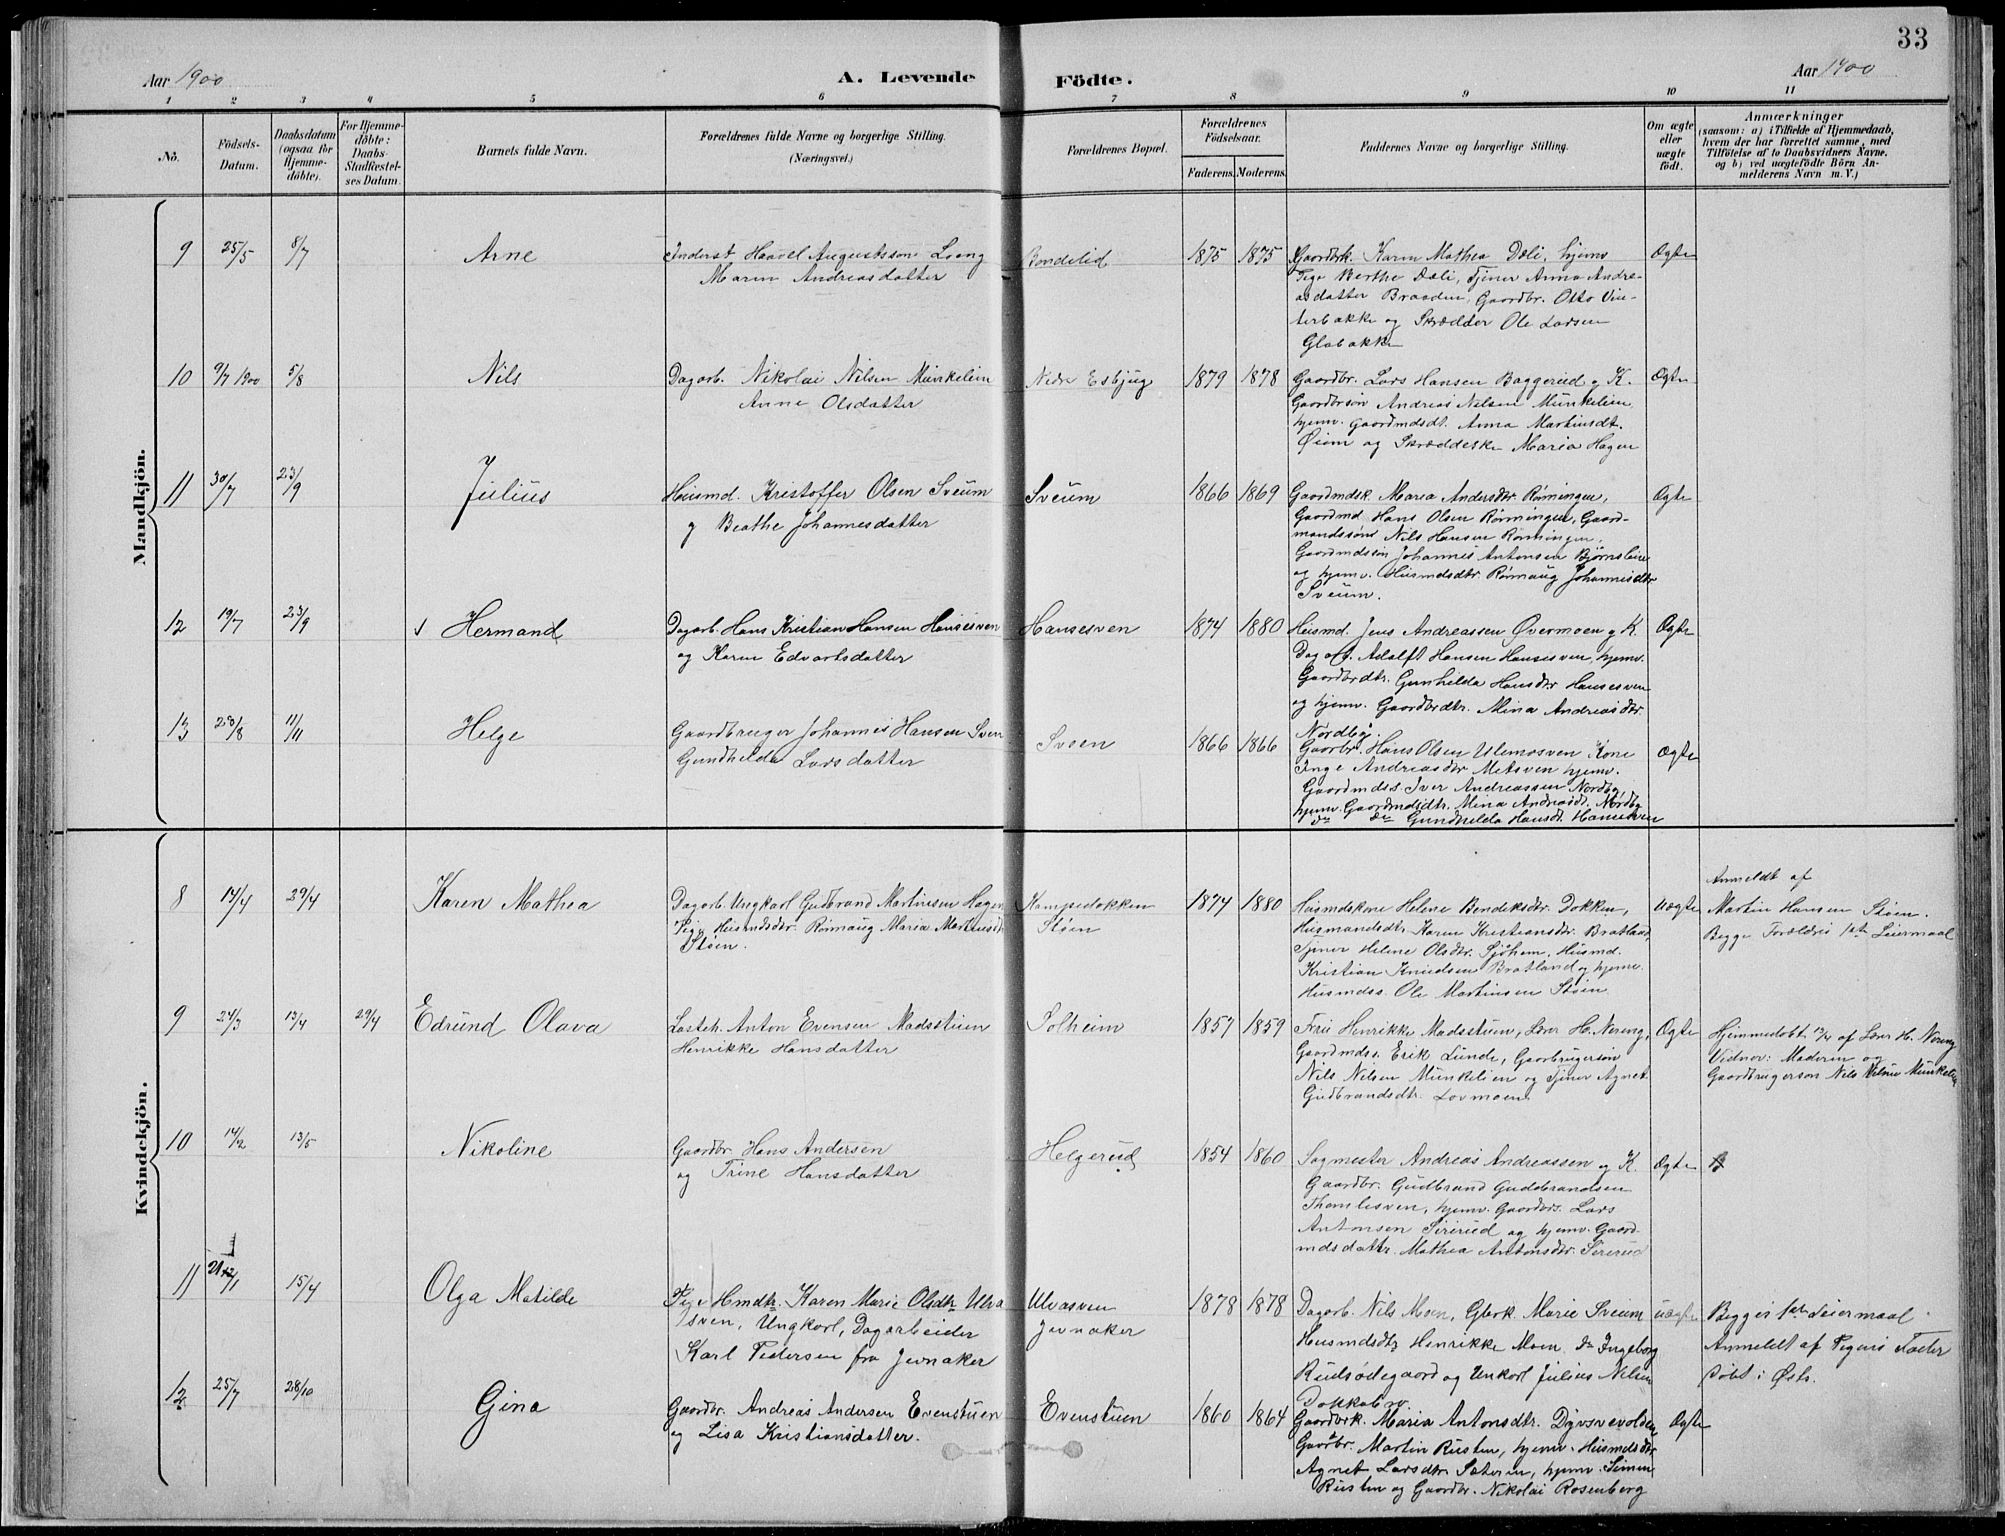 33
Aar 1900
A. Levende
Födte.
Aar 1900
1 2 3 4 5 6 7 8 9 10 11
No.
Födsels-
Datum.
Daabsdatum
(ogsaa for
Hjemme-
döbte).
For Hjemme-
döbte:
Daabs-
Stadfæstel-
ses Datum.
Barnets fulde Navn.
Forældrenes fulde Navne og borgerlige Stilling.
(Næringsvei.)
Forældrenes Bopæl.
Forældrenes
Födselsaar.
Faderens. Moderens.
Faddernes Navne og borgerlige Stilling.
Om ægte
eller
uægte
födt.
Anmærkninger
(saasom: a) i Tilfælde af Hjemmedaab,
hvem der har forrettet samme, med
Tilföielse af to Daabsvidners Navne,
og b) ved uægtefödte Börn An-
melderens Navn m. V.)
Mandkjön.
9 25/5 8/7
Arne
Inderst Haavel Augustsson Loeng
Maren Andreasdatter
Bondelid
1875 1875
Gaardbrk. Karen Mathea Dæli, hjemv.
Pige Berthe Dæli, Tjener Anna Andre-
asdatter Braaden, Gaardbr. Otto Vin-
terbakke og Skrædder Ole Larsen
Glæbakke
Ægte
10 9/7 1900 5/8
Nils
Dagarb. Nikolai Nilsen Munkelien
Anne Olsdatter
Nedre Esbjug
1879 1878
Gaardbr. Lars Hansen Baggerud og K.
Gaardbrsøn Andreas Nilsen Munkelien,
hjemv. Gaardmdsdt. Anna Martinsdt.
Øiom og Skræddeske Maria Hagen
Ægte
11 30/7 23/9
Julius
Husmd. Kristoffer Olsen Sveum
og Beathe Johannesdatter
Sveum
1866 1869
Gaardmdsk. Maria Andersdtr. Rønningen,
Gaardmd. Hans Olsen Rønningen, Gaard-
mandssøns Nils Hansen Rønningen,
Gaardmdssøn Johannes Antonsen Bjørnslien
og hjemv. Husmdsdtr. Rønnaug Johannisdtr
Sveum.
Ægte
12 19/7 23/9
Hermand
Dagarb. Hans Kristian Hansen Hansesven
og Karen Edvartsdatter
Hansesven
1874 1880
Husmd. Jens Andreassen Øvermoen og K.
Dagarb. Adolft Hansen Hansesven, hjemv.
Gaardbrdtr. Gunhilda Hansdtr Hansesven
og hjemv. Gaardbrdtr. Mina Andreasdtr.
Nordby.
Ægte
13 28/8 11/11
Helge
Gaardbruger Johannes Hansen Sveen
Gundhilda Larsdatter
Sveen
1866 1866
Gaarbr. Hans Olsen Ulemosven Kone
Inge Andreasdtr Metsven hjemv.
Gaardmdss. Iver Andreassen Nordby,
hjemv. Gaardmdsdtr. Mina Andreasdt. Nordby
do do Gundhilda Hansdt. Hansesven
Ægte
Kvindekjön.
8 14/4 29/4
Karen Mathea
Dagarb. Ungkarl Gudbrand Martinsen Hagen
Pige Husmdsdtr. Rønnaug Maria Martinsdtr
Støen.
Kampedokken
Støen
1874 1880
Husmdskone Helene Bendiksdtr. Dokken,
Husmandsdtr. Karen Kristiansdtr. Bratland,
Tjener Helene Olsdtr. Sjøhem, Husmd.
Kristian Knudsen Bratland og hjemv.
Husmdss. Ole Martinsen Støen
Uægte
Anmeldt af
Martin Hansen Støen.
Begge Forældres 1ste Leiermaal
9 24/3 13/4 29/4
Edrund Olava
Lasteh. Anton Evensen Madsstuen
Henrikke Hansdatter
Solheim
1857 1859
Frii Henrikke Madsstuen, Lærer H. Nereng,
Gaardmds. Erik Lunde, Gaarbrugersøn
Nils Nilsen Munkelien og Tjener Agnet
Gudbrandsdtr. Lovmoen
Ægte
Hjemmedøbt 13/4 af Lærer H. Nereng
Vidner: Moderen og
Gaardbrugersøn Nils Nilsen Munkelien
10 14/2 13/5
Nikoline
Gaardbr. Hans Andersen
og Trine Hansdatter
Helgerud
1854 1860
Sagmester Andreas Andreassen og K.
Gaardbr. Gudbrand Guddbrandsen
Thomlesven, hjemv. Gaardbrs. Lars
Antonsen Sirirud og hjemv. Gaard-
mdsdattr. Mathea Antonsdtr. Sirerud
Ægte
11 21/1 15/4
Olga Matilde
Pige Hmdtr. Karen Marie Olsdtr Ulva
sven, Ungkarl, Dagarbeider
Karl Pedersen fra Jevnaker
Ulvasven
Jevnaker
1878 1878
Dagarb. Nils Moen, Gbrk. Marie Sveum
Husmdsdtr Henrikke Moen do Ingeborg
Rudsødegaard og Unkarl Julius Nilsen
Dokkabov.
uægte
Begges 1ste Leiermaal
Anmeldt af Pigens Fader
Døbt i Østs.
12 25/7 28/10
Gina
Gaardbr. Andreas Andersen Evenstuen
og Lisa Kristiansdatter.
Evenstuen
1860 1864
Gaardbrk. Maria Antonsdtr. Dyvsvevolden
Gaarbr. Martin Rusten, hjemv. Husmdsdtr
Agnet Larsdtr. Sæteren, hjemv. Simen
Rusten og Gaardbr. Nikolai Rosenberg
Ægte